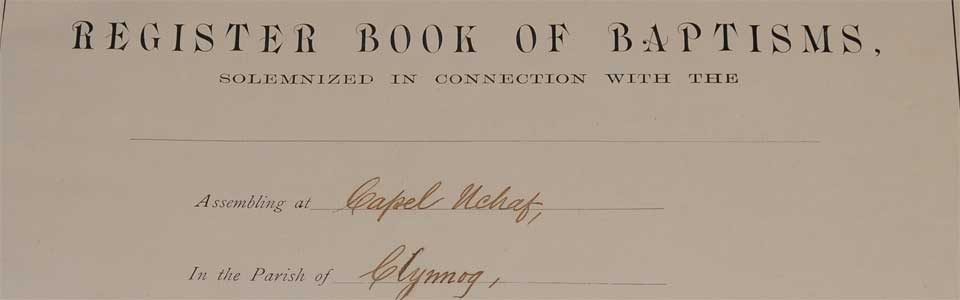 REGISTER BOOK OF BAPTISMS,
SOLEMNIZED IN CONNECTION WITH THE
Assembling at Capel Uchaf,
In the Parish of Clynnog,